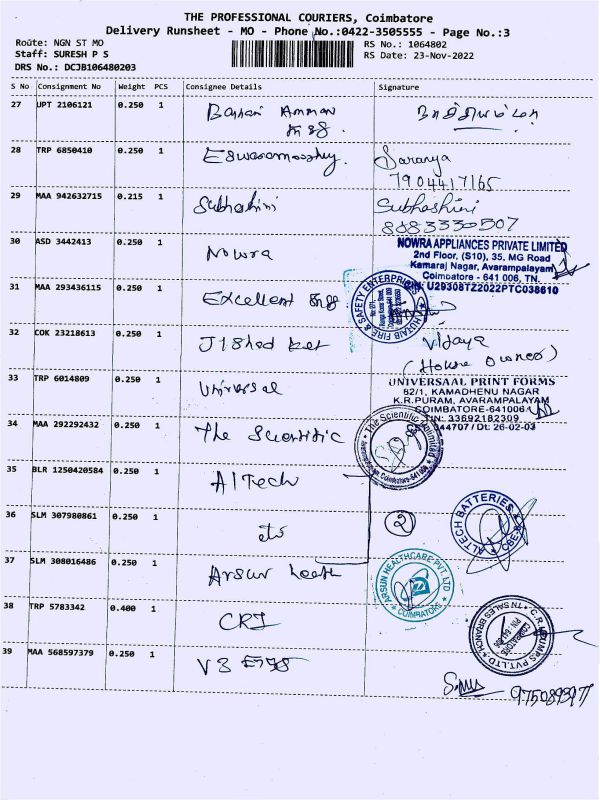 THE PROFESSIONAL COURIERS, Coimbatore
Delivery Runsheet - MO - Phone No.:0422-3505555 - Page No.:3
Route: NGN ST MO
RS No.: 1064802
Staff: SURESH P S
RS Date: 23-Nov-2022
DRS No.: DCJB106480203
S No Consignment No Weight PCS Consignee Details Signature
27 UPT 2106121 0.250 1 Amman
28 TRP 6850410 0.250 1 Saranya
7904417165
29 MAA 942632715 0.215 1 Subhashini Subhashini
8883330507
30 ASD 3442413 0.250 1 Nowra
NOWRA APPLIANCES PRIVATE LIMITED
2nd Floor, (S10), 35, MG Road
Kamaraj Nagar, Avarampalayam
Coimbatore - 641 006, TN.
U29308TZ2022PTC038610
31 MAA 293436115 0.250 1 Excellent
FIRE & SAFETY ENTERPRISES
32 COK 23218613 0.250 1 Vijaya
(House Owner)
33 TRP 6014809 0.250 1 Universal
UNIVERSAAL PRINT FORMS
82/1, KAMADHENU NAGAR
K.R.PURAM, AVARAMPALAYAM
COIMBATORE-641006
TIN: 33692182309
344707 / Dt: 26-02-03
34 MAA 292292432 0.250 1 The Scientific
The Scientific
Coimbatore-641006
35 BLR 1250420584 0.250 1 AlTech
36 SLM 307980861 0.250 1 2
ALTECH BATTERIES
CBE
37 SLM 308016486 0.250 1 Arsur
ARSUR HEALTHCARE PVT. LTD
COIMBATORE
38 TRP 5783342 0.400 1 CRI
C.R.I. PUMPS PVT.LTD
TN SALES BRANCH
39 MAA 568597379 0.250 1 V3